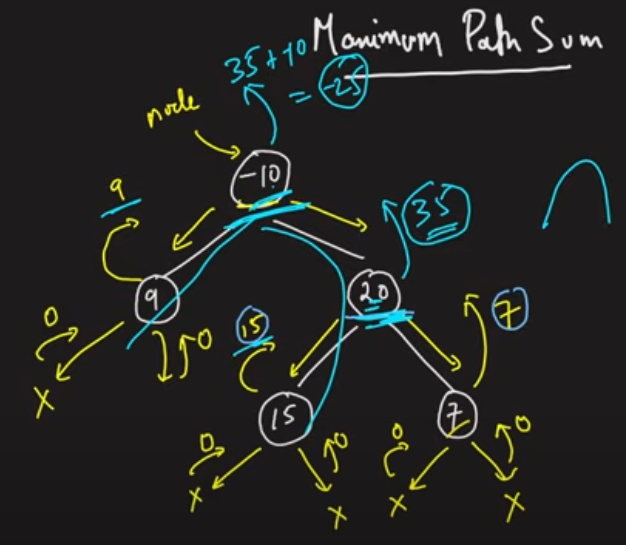 Maximum Path Sum
35+10
= -25
node
-10
9
35
9
20
7
0
0
15
15
7
0
0
0
0
X
X
X
X
X